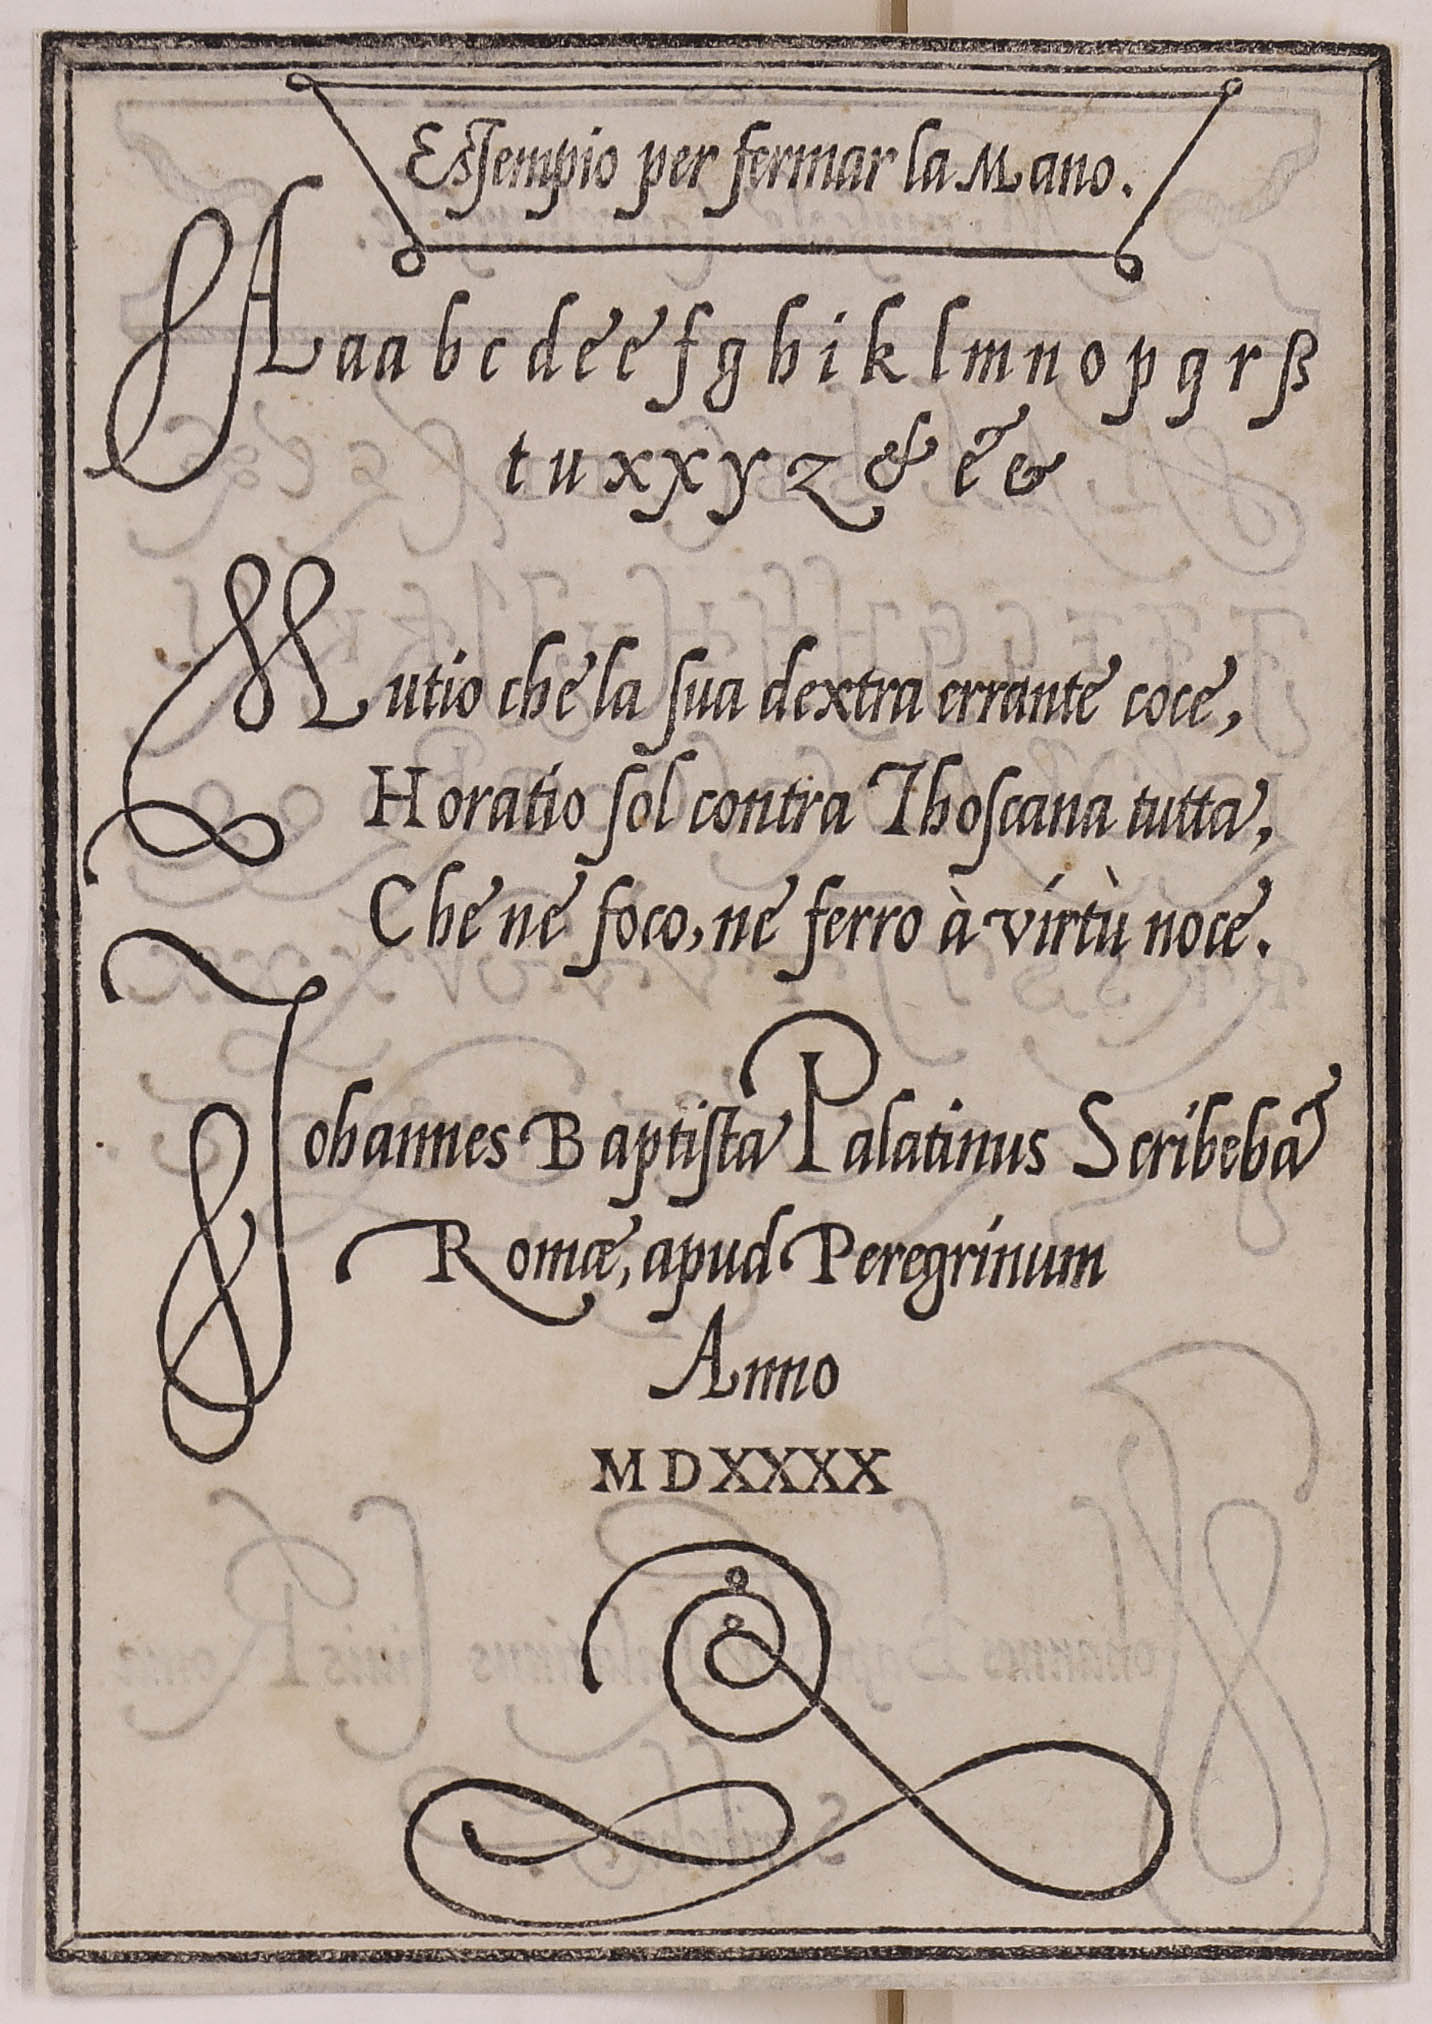 Essempio per fermar la Mano.
A a a b c d e e f g h i k l m n o p q r ß
t u x x y z & & &
Mutio che la sua dextra errante coce,
Horatio sol contra Thoscana tutta,
Che ne foco, ne ferro à virtù noce.
Johannes Baptista Palatinus Scribeba
Romæ, apud Peregrinum
Anno
MDXXXX